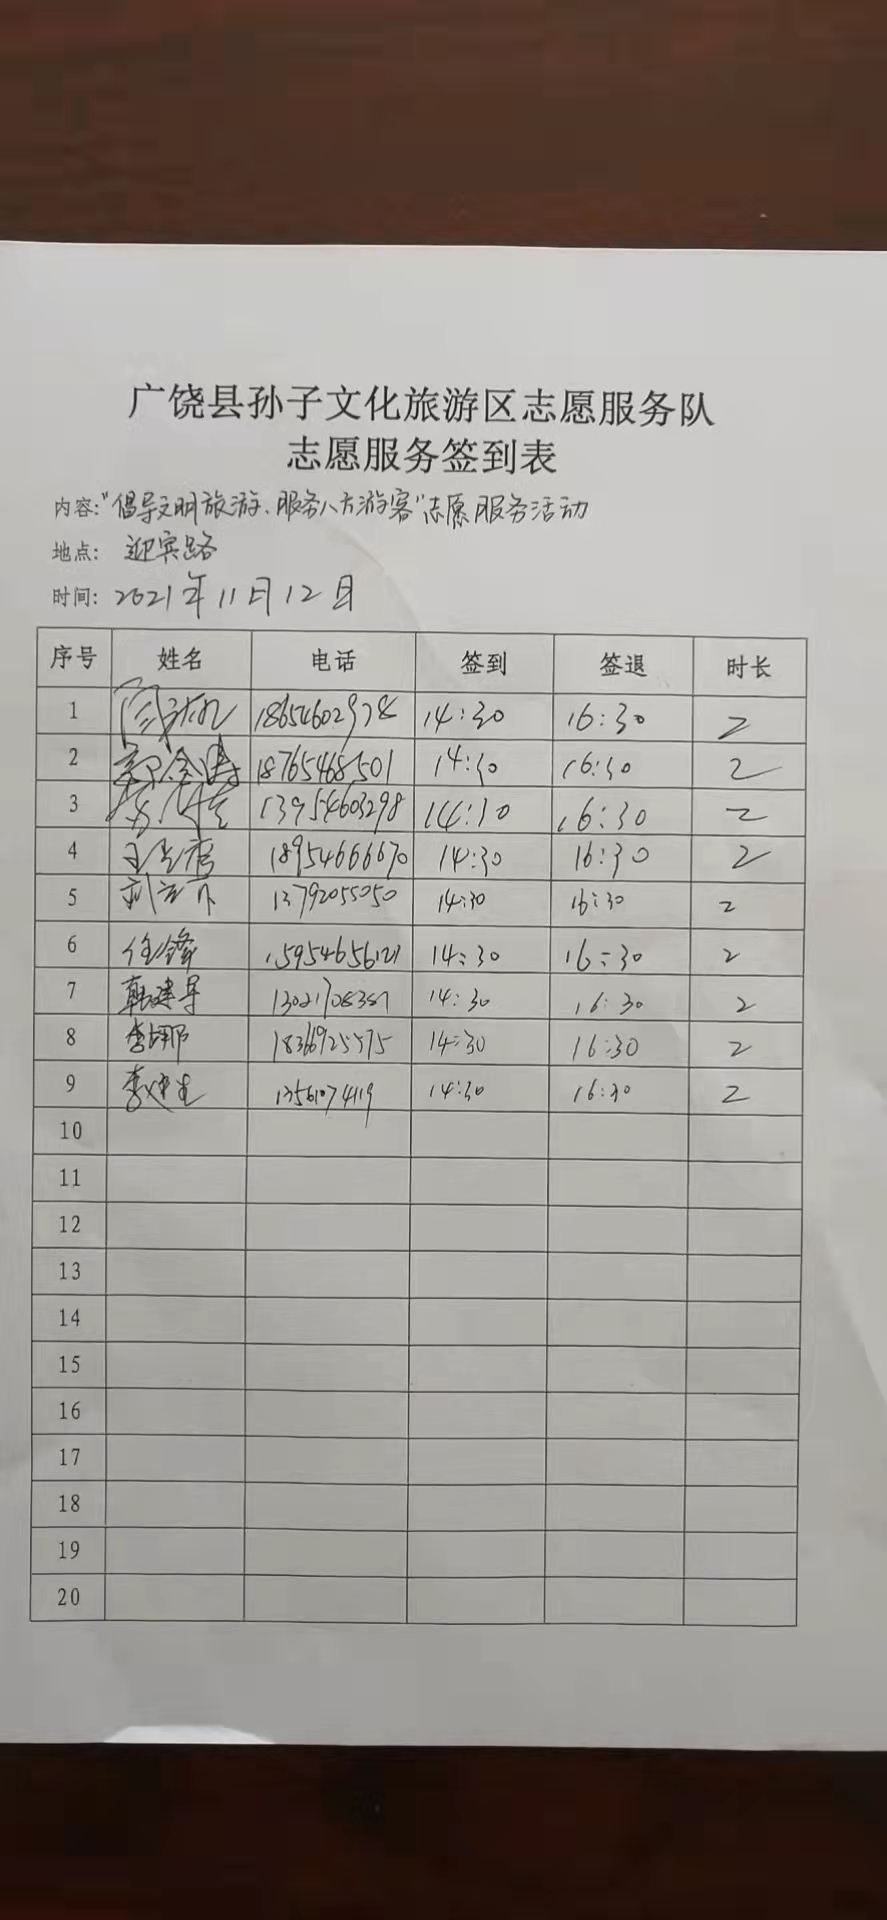 广饶县孙子文化旅游区志愿服务队
志愿服务签到表
内容:“倡导文明旅游、服务八方游客”志愿服务活动
地点: 迎宾路
时间: 2021年11月12日
序号 姓名 电话 签到 签退 时长
1 14:30 16:30 2
2 18765468501 14:30 16:30 2
3 13954603298 14:30 16:30 2
4 18954666670 14:30 16:30 2
5 13792055050 14:30 16:30 2
6 任锋 15954656121 14:30 16:30 2
7 14:30 16:30 2
8 李娜 18366925575 14:30 16:30 2
9 李建生 13561074119 14:30 16:30 2
10
11
12
13
14
15
16
17
18
19
20